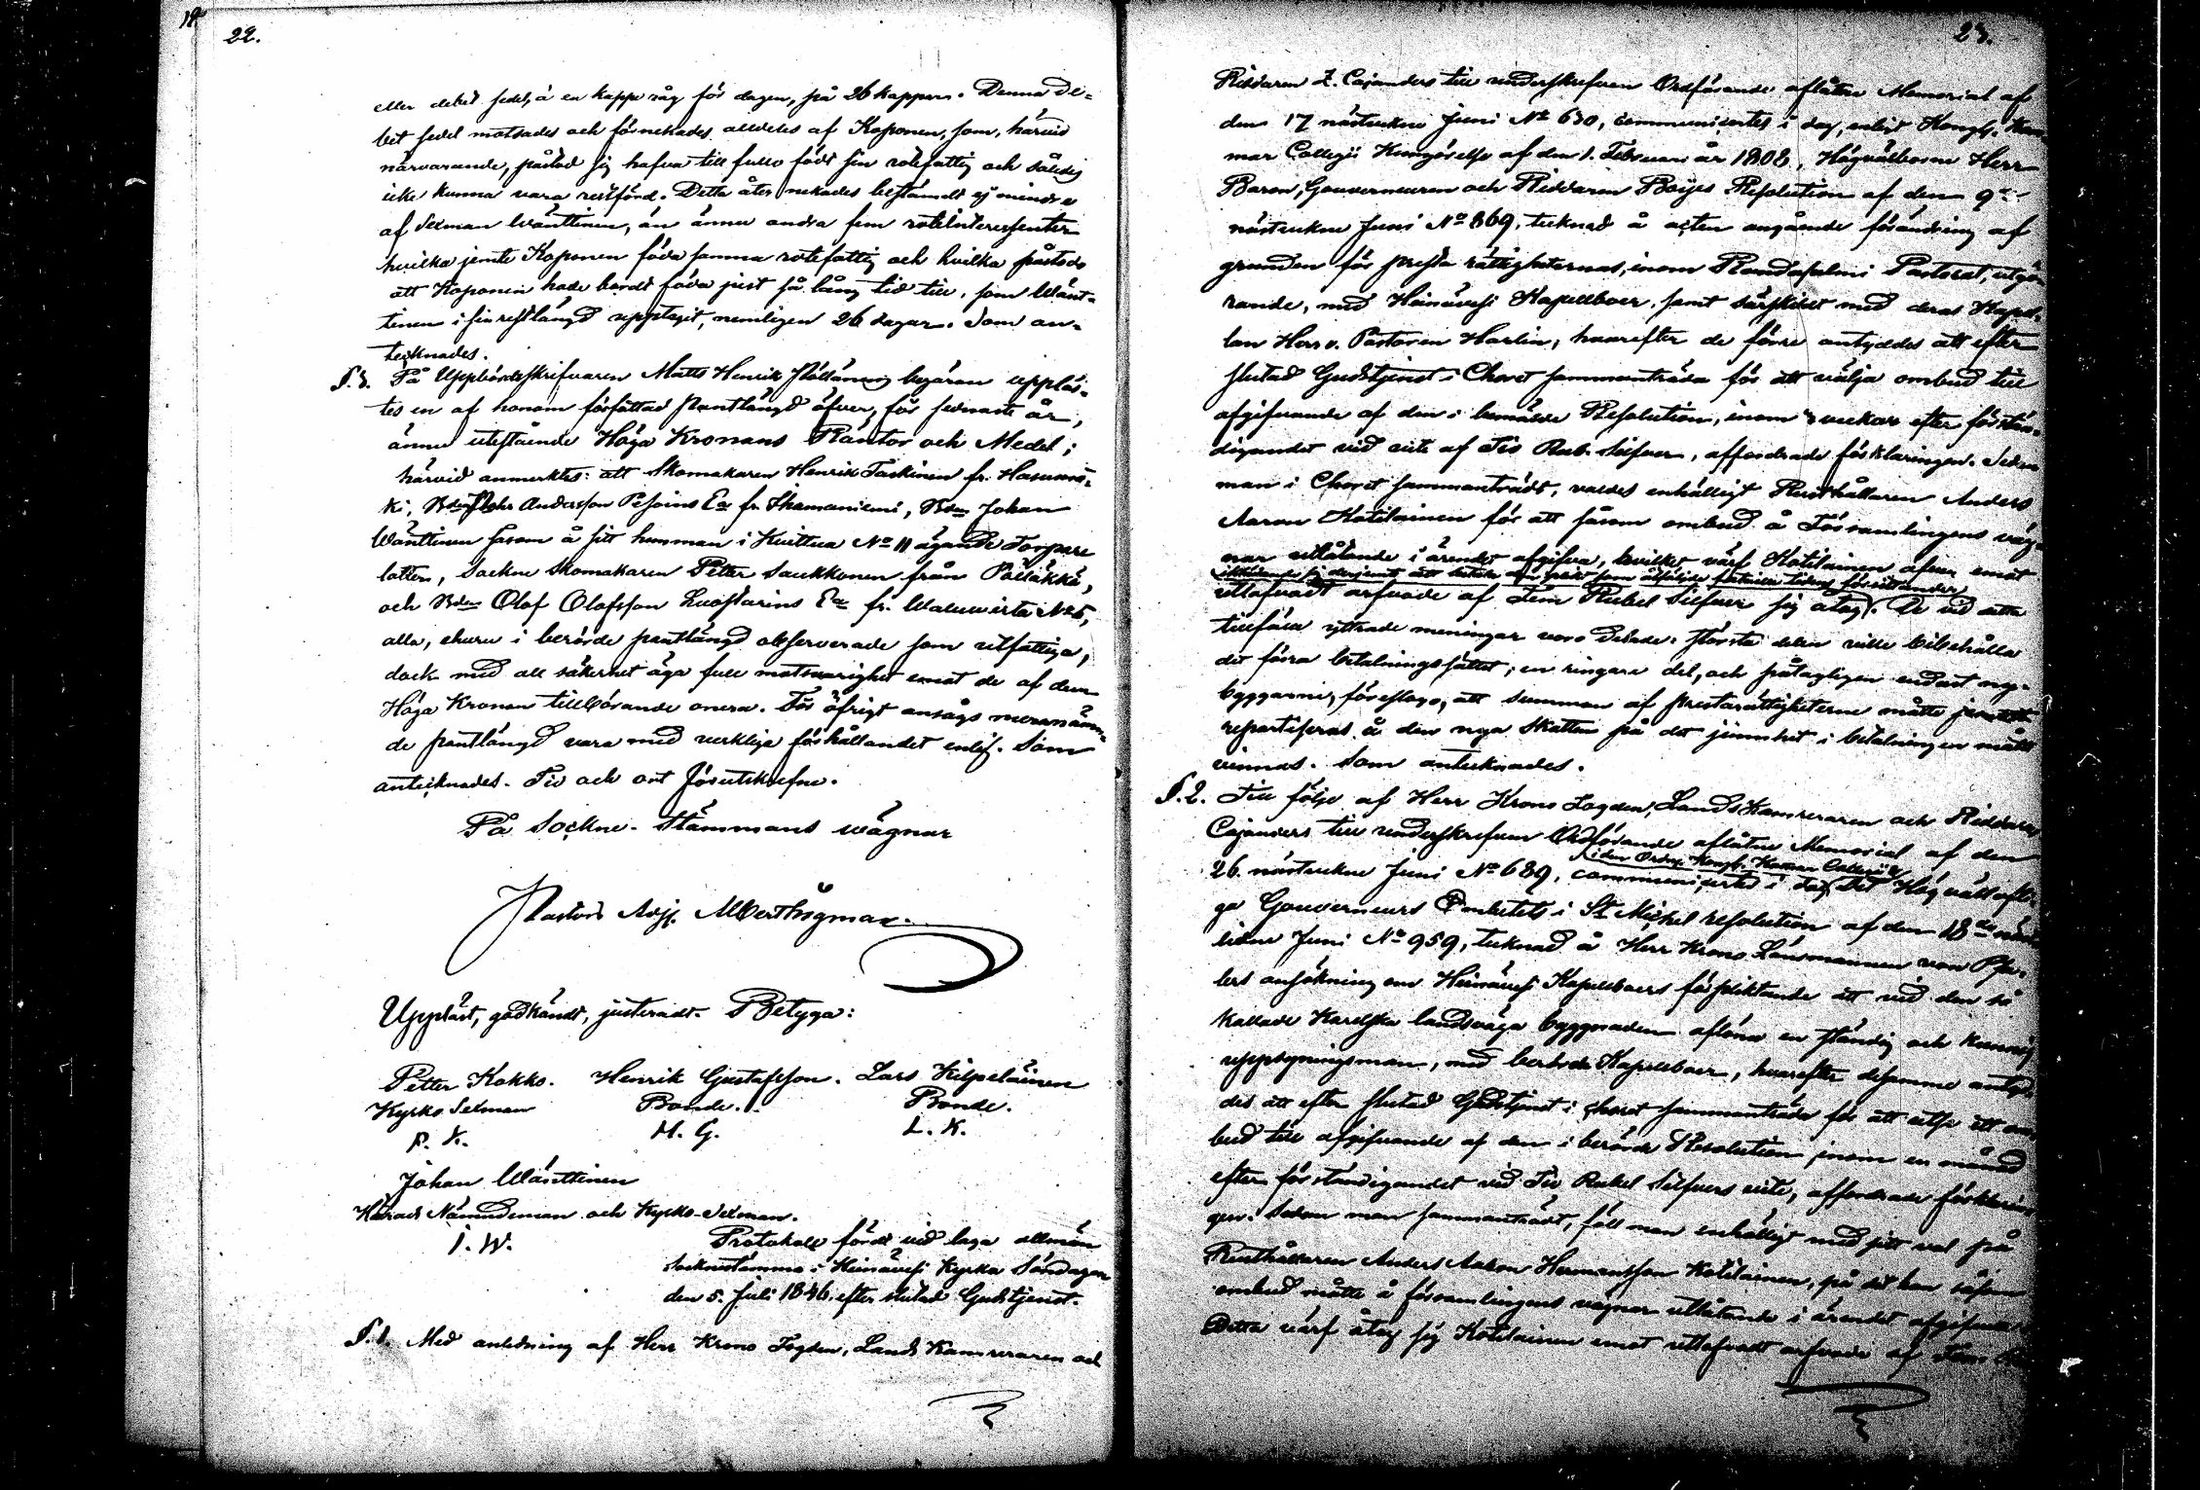 22.
eller debet sedel, à en kappe råg för dagen, på 26 kappar. Denna de-
bet sedel motsades och förnekades alldeles af Koponen, som, härvid
närvarande, påstod sig hafva till fullo född sin rotefattig och således
icke kunna vara restförd. Detta åter nekades bestämdt ej mindre
af Sexman Wänttinen, än ännu andra fem roteinteressenter
hvilka jemte Koponen föda samma rotefattig och hvilka påstodo
att Koponen hade bordt föda just så lång tid till, som Wänt-
tinen i sin restlängd upptagit, nemligen 26 dagar. Som an-
tecknades.
§.3. På Uppbördsskrifvaren Matts Henrik begäran uppläs-
tes en af honom författad Rantlängd öfver, för sednaste år,
ännu utestående Höga Kronans Räntor och Medel;
härvid anmerktes: att Skomakaren Henrik Taskinen fr. Hasums-
ki, Bden Andersson Pesoins Ea fr. Ihamaniemi, Bden Johan
Wänttinen såsom å sitt hemman i Kuittua No 11 ägande Torpare
lotten, Sockne Skomakaren Petter Saukkonen från Pölläkkä,
och Bden Olof Olofsson Luostarins Ea fr. Waluwirta No 5,
alla, ehuru i berörde rantlängd observerade som utfattiga,
dock med all säkerhet äga full motsvarighet emot de af dem
Höga Kronan tillhörande onera. För öfrigt ansågs mernämn-
de rantlängd vara med verkliga förhållandet enlig. Som
antecknades. Tid och ort förutskrefne.
På Sockne-Stämmans wägnar
Pastors Adj. Albert Nygman.
Uppläst, godkändt, justeradt. Betyga:
Petter Kokko. Henrik Gustafsson. Lars Kilpeläinen
Kyrko Sexman Bonde. Bonde.
P. K. H. G. L. K.
Johan Wänttinen
Härads Nämndeman och Kyrko-Sexman.
J. W.
Protokoll fördt vid laga allmän
Socknestämma i Heinävesi Kyrka Söndagen
den 5. Juli 1846, efter slutad Gudstjenst.
§.1. Med anledning af Herr Krono Fogden, Lands Kamreraren och
23.
Riddaren Z. Cajanders till underskrefven Ordförande aflåtne Memorial af
den 17 nästvekne Juni No 630, communicertes i dag, enligt Kongl. Kam
mar Collegii Kungörelse af den 1. Februari år 1808, Högvälborne Herr
Baron, Gouverneuren och Riddaren Boijes Resolution af den 9de
nästvekne Juni No 869, tecknad å acten angående förändring af
grunden för presta rättigheternas, inom Randasalmi Pastorat, utgö
rande, med Heinävesi Kapellboer, samt särskildt med deras Kapel-
lan Herr v. Pastoren Harlin, hvarefter de förre antyddes att efter
slutad Gudstjenst i Choret sammanträda för att välja ombud till
afgifvande af den i bemälde Resolution, inom veckor efter förstän-
digandet vid vite af Tio Rub. Silfver, affordrade förklaringen. Sedan
man i Choret sammanträdt, valdes enhälligt Rusthållaren Anders
Aaron Kotilainen för att såsom ombud å Församlingens väg-
nar utlåtande i ärendet afgifva, hvilket värf Kotilainen äfven emot
utlofvadt arfvode af Fem Rubel Silfver sig åtog. De vid detta
tillfälle yttrade meningar voro delade: största delen ville bibehålla
det förra betalningssättet; en ringare del, och påtagligen endast ny-
byggarne, föreslogo, att summan af prestarättigheterne måtte
repartiseras å den nya skatten på det jemnhet i betalningen måtte
vinnas. Som antecknades.
§.2. Till följe af Herr Krono Fogden, Lands Kamreraren och Riddaren
Cajanders till underskrefven Ordförande aflåtne Memorial af den
26. nästvekne Juni No 689, communicertes i dag
ga Gouverneurs Embetets i St. Michel resolution af den 18de
lidne Juni No 959, tecknad å Herr Krono Länsmannen von
lers ansökning om Heinävesi Kapellboers förpliktande att vid den så
kallade Karelska landsväga byggnaden aflöna en ständig och kunnig
uppsyningsman, med berörde Kapellboer, hvarefter desamme antyd-
des att efter slutad Gudstjenst i choret sammanträda för att utse ett om
bud till afgifvande af den i berörde Resolution inom en månad
efter förständigandet vid Tio Rubel Silfvers vite, affordrade förklarin
gen. Sedan man sammanträdt, föll man enhälligt med sitt val på
Rusthållaren Anders Aaron Hermansson Kotilainen, på det han såsom
ombud måtte å församlingens vägnar utlåtande i ärendet afgifva.
Detta värf åtog sig Kotilainen emot utlofvadt arfvode af Fem